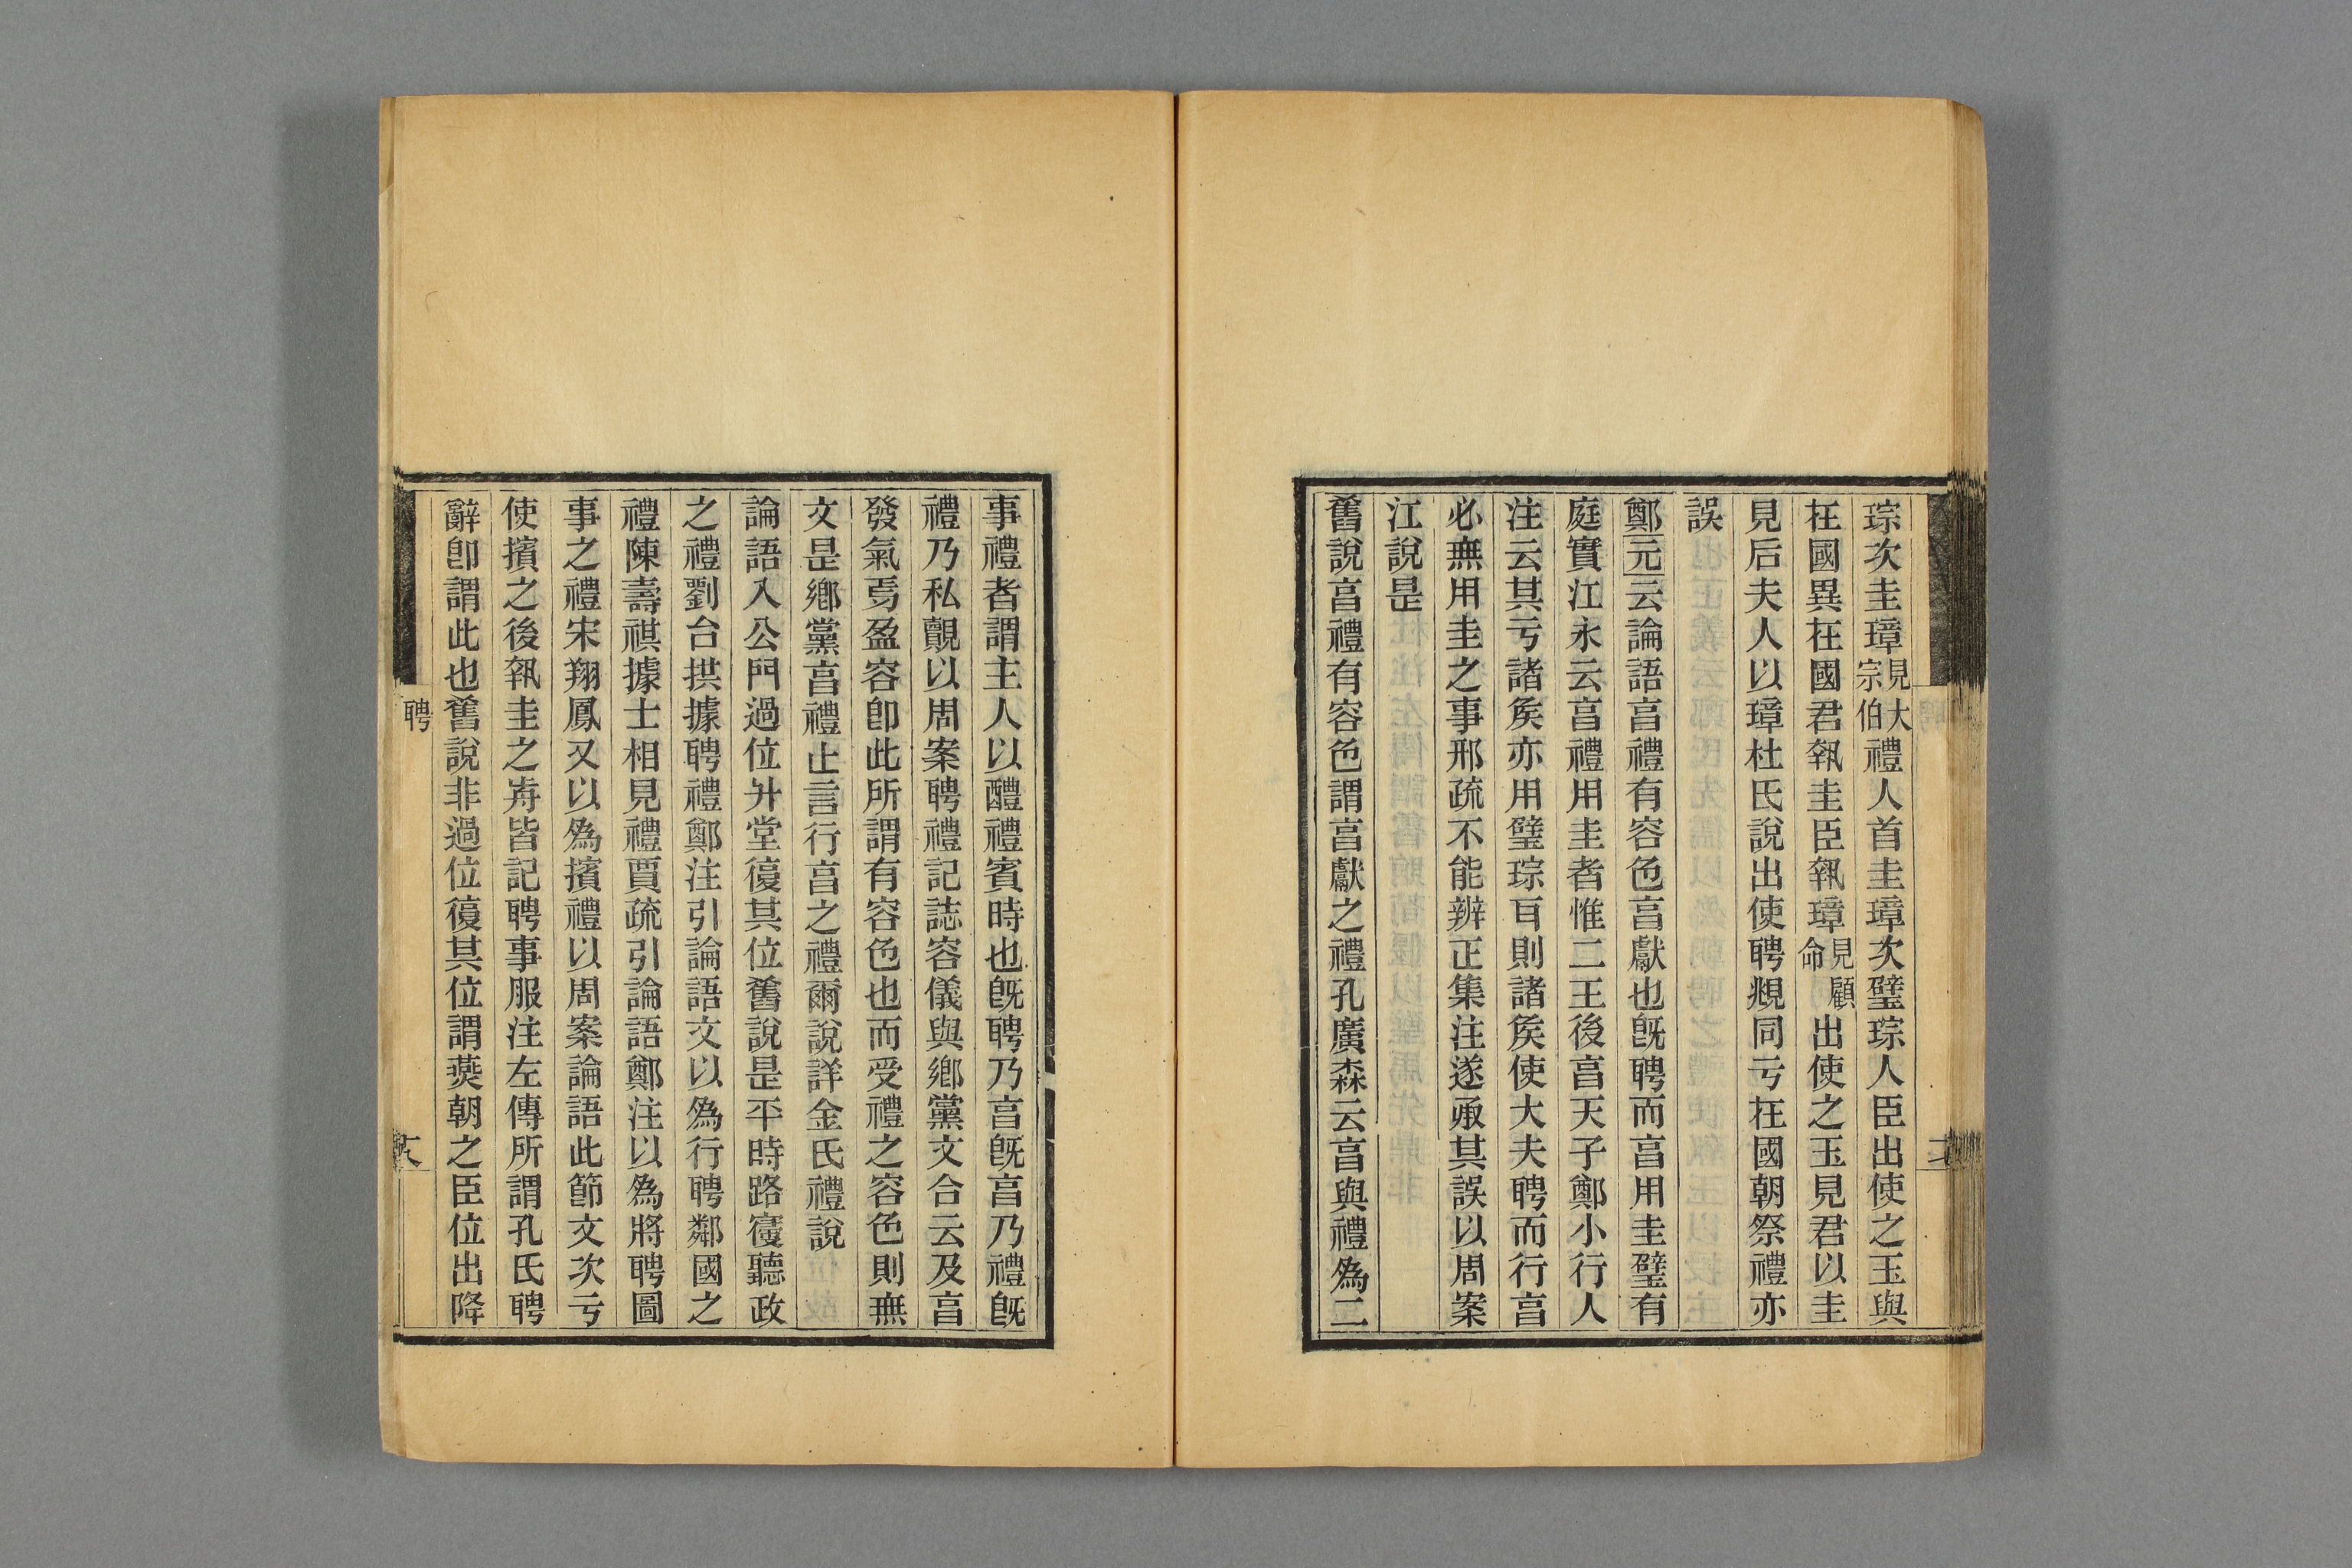 琮次圭璋見大宗伯禮人首圭璋次璧琮人臣出使之玉與
在國異在國君執圭臣執璋見顧命出使之玉見君以圭
見后夫人以璋杜氏說出使聘覜同亏在國朝祭禮亦
誤
鄭元云論語亯禮有容色亯獻也旣聘而亯用圭璧有
庭實江永云亯禮用圭者惟二王後亯天子鄭小行人
注云其亏諸矦亦用璧琮耳則諸矦使大夫聘而行亯
必無用圭之事邢疏不能辨正集注遂承其誤以周案
江說是
舊說亯禮有容色謂亯獻之禮孔廣森云亯與禮為二
事禮者謂主人以醴禮賓時也旣聘乃亯旣亯乃禮旣
禮乃私覿以周案聘禮記誌容儀與鄉黨文合云及亯
發氣焉盈容卽此所謂有容色也而受禮之容色則無
文是鄉黨亯禮止言行亯之禮爾說詳金氏禮說
論語入公門過位升堂復其位舊說是平時路寢聽政
之禮劉台拱據聘禮鄭注引論語文以為行聘鄰國之
禮陳壽祺據士相見禮賈疏引論語鄭注以為將聘圖
事之禮宋翔鳳又以為擯禮以周案論語此節文次亏
使擯之後執圭之歬皆記聘事服注左傳所謂孔氏聘
辭卽謂此也舊說非過位復其位謂燕朝之臣位出降
聘